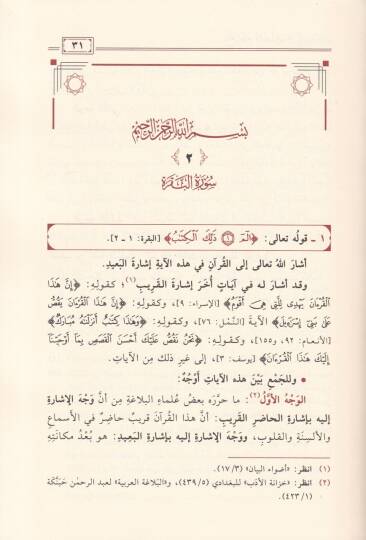 ٣١
بِسْمِ اللَّهِ الرَّحْمَنِ الرَّحِيمِ
٢
سُورَةُ البَقَرَة
١ - قولُه تعالى: ﴿الٓمٓ ۝١ ذَٰلِكَ ٱلْكِتَٰبُ﴾ [البقرة: ١ - ٢].
أشارَ اللهُ تعالى إلى القُرآنِ في هذه الآيةِ إشارةَ البَعيدِ.
وقد أشارَ له في آيَاتٍ أُخَرَ إشارةَ القَريبِ(١)؛ كقولِهِ: ﴿إِنَّ هَٰذَا
ٱلْقُرْءَانَ يَهْدِى لِلَّتِى هِىَ أَقْوَمُ﴾ [الإسراء: ٩]، وكقولِهِ: ﴿إِنَّ هَٰذَا ٱلْقُرْءَانَ يَقُصُّ
عَلَىٰ بَنِىٓ إِسْرَٰٓءِيلَ﴾ الآيةَ [النَّمْل: ٧٦]، وكقولِهِ: ﴿وَهَٰذَا كِتَٰبٌ أَنزَلْنَٰهُ مُبَارَكٌ﴾
[الأنعام: ٩٢، و١٥٥]، وكقولِهِ: ﴿نَحْنُ نَقُصُّ عَلَيْكَ أَحْسَنَ ٱلْقَصَصِ بِمَآ أَوْحَيْنَآ
إِلَيْكَ هَٰذَا ٱلْقُرْءَانَ﴾ [يوسف: ٣]، إلى غيرِ ذلك مِن الآياتِ.
• وللجَمْعِ بَيْنَ هذه الآياتِ أَوْجُهٌ:
الوَجْهُ الأوَّلُ(٢): ما حرَّرَه بعضُ عُلماءِ البلاغةِ مِن أنَّ وَجْهَ الإشارةِ
إليه بإشارةِ الحاضرِ القَريبِ: أنَّ هذا القُرآنَ قريبٌ حاضِرٌ في الأسماعِ
والألسِنَةِ والقلوبِ، ووَجْهَ الإشارةِ إليه بإشارةِ البَعيدِ: هو بُعْدُ مكانَتِهِ
(١) انظر: «أضواء البيان» (١٧/٣).
(٢) انظر: «خزانة الأدَب» للبغدادي (٤٣٩/٥)، و«البَلاغة العربية» لعبد الرحمٰن حَبَنَّكَة
(٤٢٣/١).